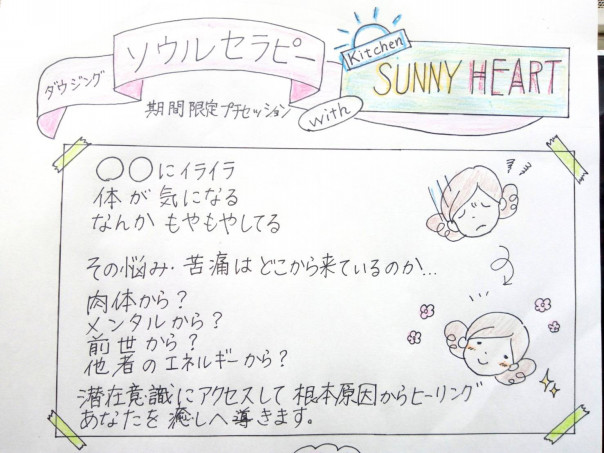 ダウジング
ソウルセラピー
Kitchen
SUNNY HEART
期間限定プチセッション
with
〇〇にイライラ
体が気になる
なんかもやもやしてる
その悩み・苦痛はどこから来ているのか…
肉体から?
メンタルから?
前世から?
他者のエネルギーから?
潜在意識にアクセスして根本原因からヒーリング
あなたを癒しへ導きます。